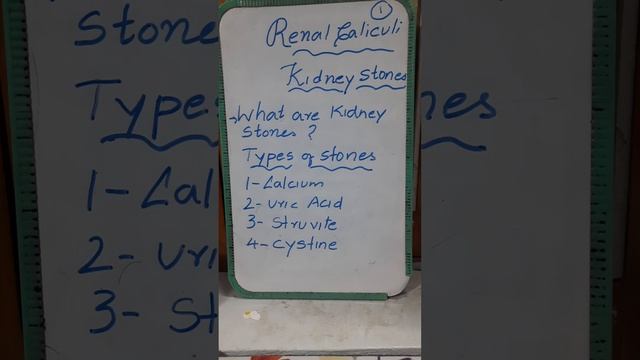 ①
Renal Caliculi
Kidney Stones
→ What are Kidney
Stones ?
Types of stones
1- Calcium
2- Uric Acid
3- Struvite
4- Cystine